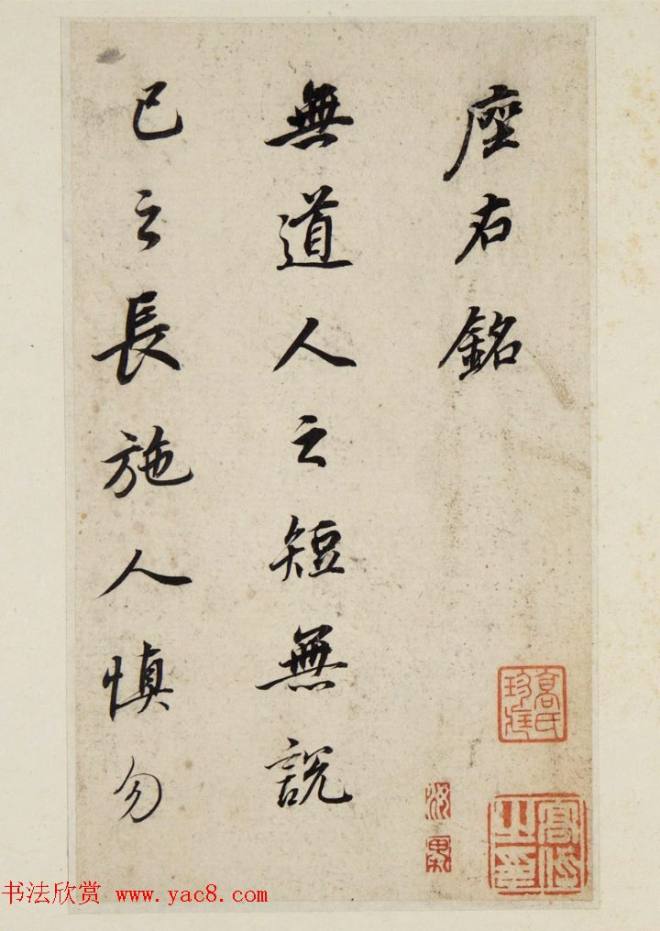 座右銘
無道人之短無説
己之長施人慎勿
高氏
书法欣赏 www.yac8.com